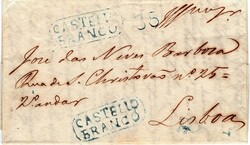 CASTELLO
BRANCO
35
José das Neves Barboza
Rua de S. Christovão nº 25=
2º andar
Lisboa
CASTELLO
BRANCO